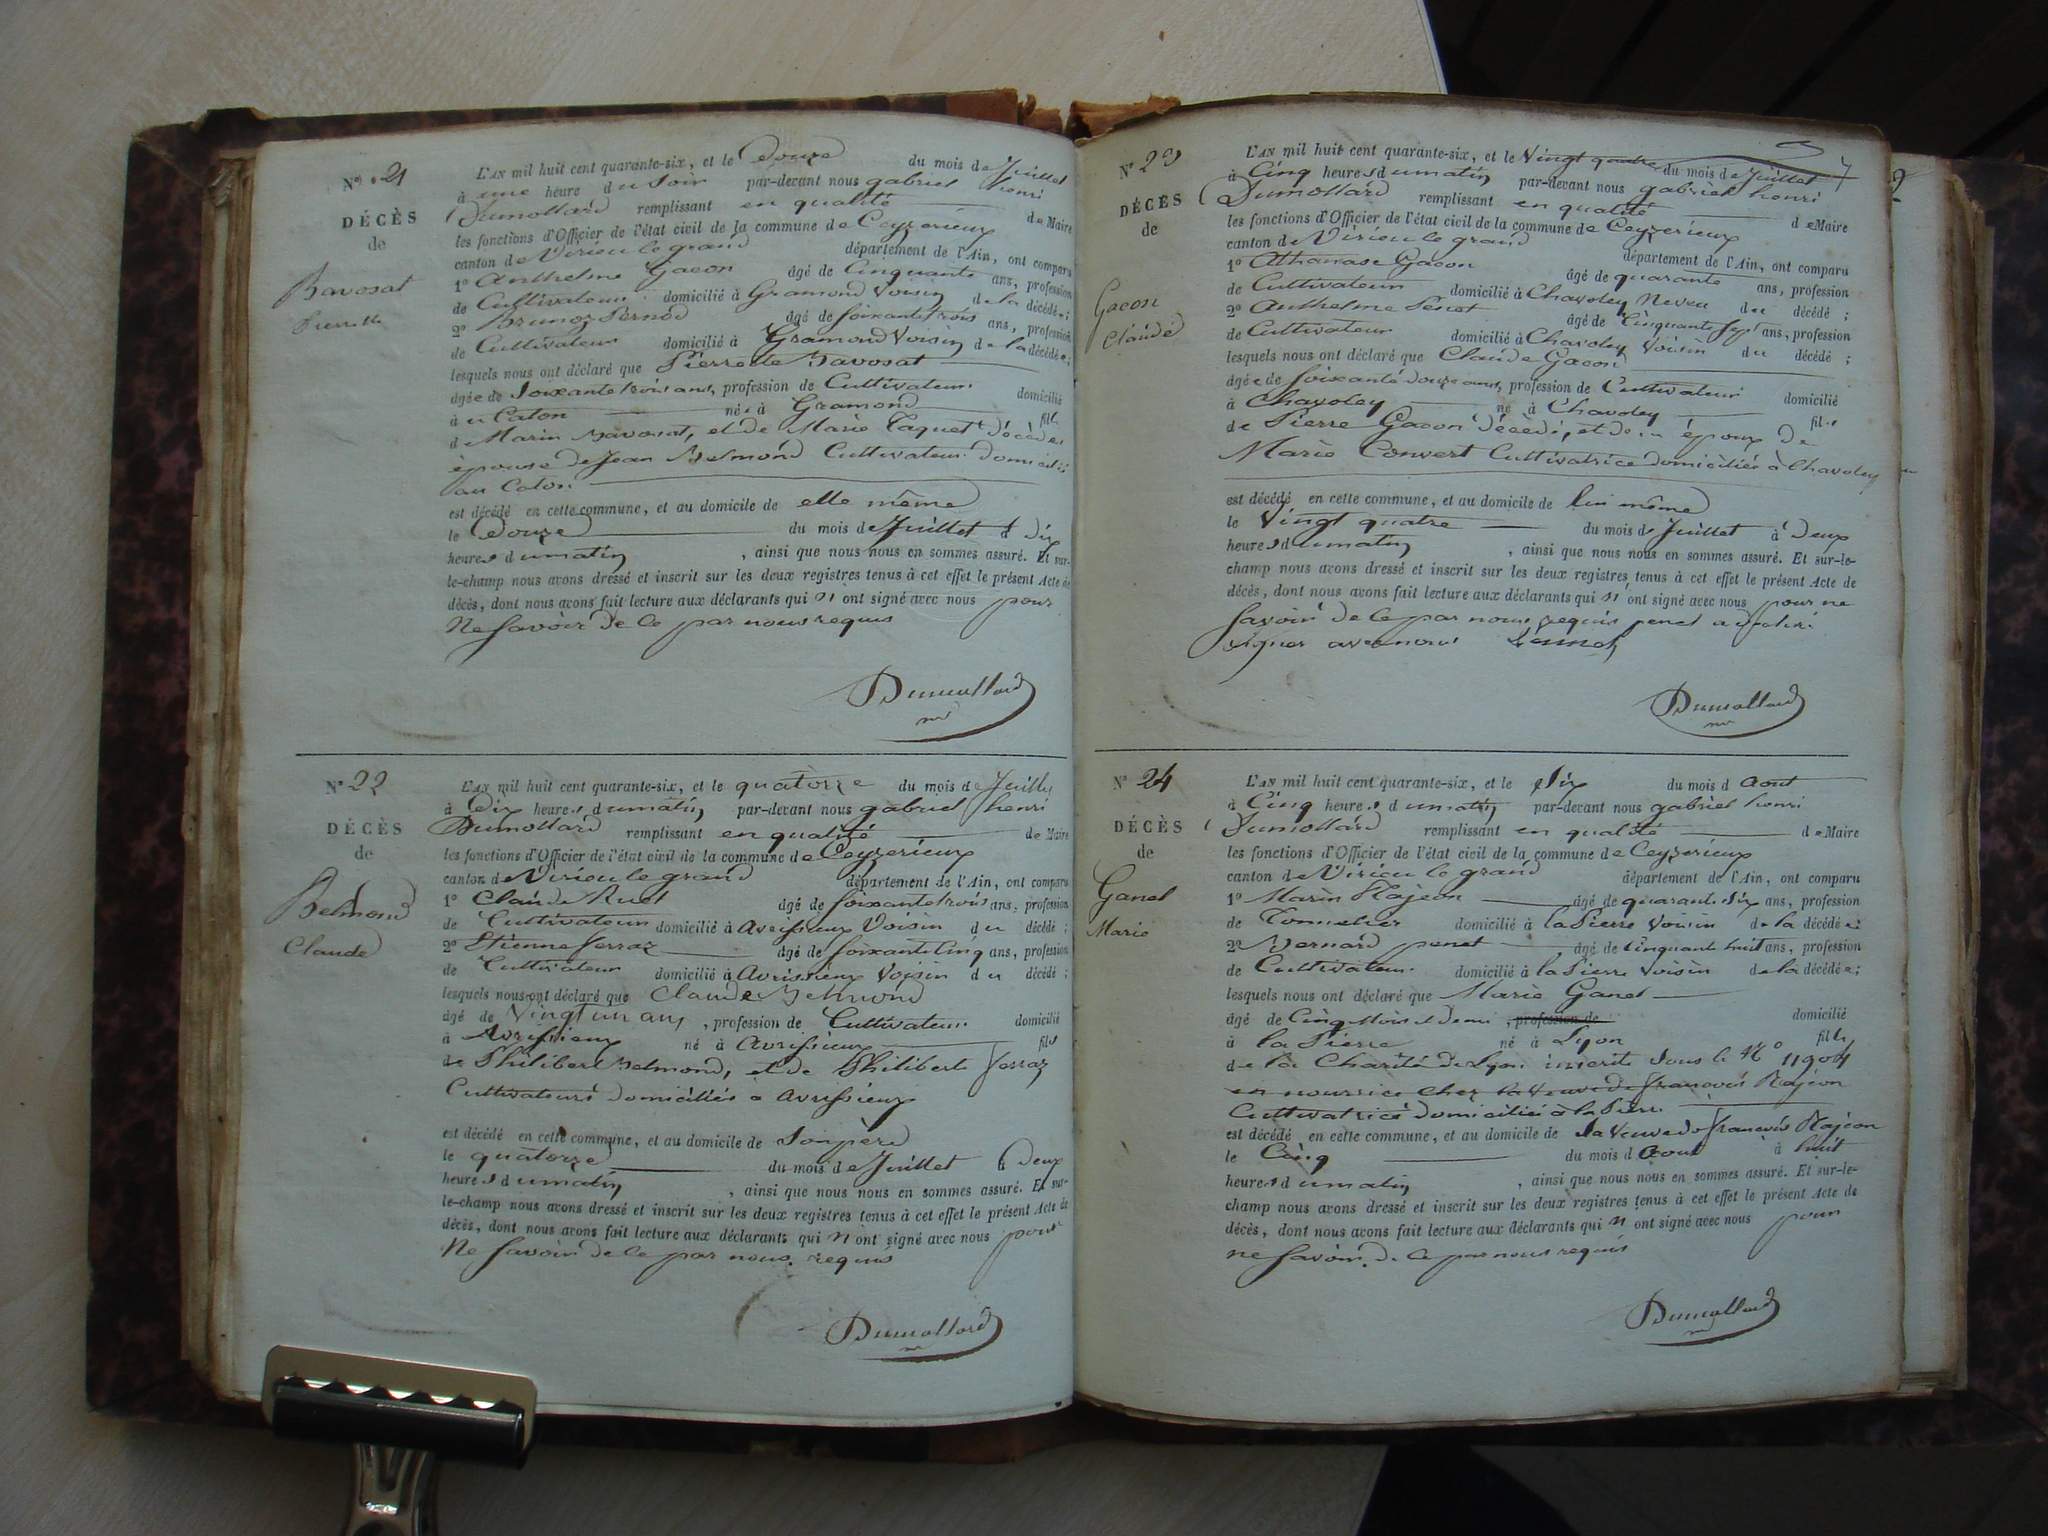 N° 21
DÉCÈS
de
Bavosat
Pierrette
L'AN mil huit cent quarante-six, et le douze du mois de Juillet
à une heure du Soir par-devant nous gabriel henri
Dumollard remplissant en qualité de Maire
les fonctions d'Officier de l'état civil de la commune de Ceyzerieux
canton de Virieu le grand département de l'Ain, ont comparu
1° Anthelme Gacon âgé de Cinquante ans, profession
de Cultivateur domicilié à Gramond Voisin de la décédée;
2° Brunoz Pernod âgé de soixante trois ans, profession
de Cultivateur domicilié à Gramond Voisin de la décédée;
lesquels nous ont déclaré que Pierrette Bavosat
âgée de Soixante trois ans, profession de Cultivateur domicilié
à u Caton née à Gramond fille
de Marin Bavosat, et de Marie Taquet décèdés
épouse de Jean Belmond Cultivateur domicilié
au Caton
est décédé en cette commune, et au domicile de elle même
le Douze du mois de Juillet à dix
heures du matin, ainsi que nous nous en sommes assuré. Et sur-
le-champ nous avons dressé et inscrit sur les deux registres tenus à cet effet le présent Acte de
décès, dont nous avons fait lecture aux déclarants qui n'ont signé avec nous pour
Ne Savoir de ce par nous requis
Dumollard
N° 22
DÉCÈS
de
Belmond
Claude
L'AN mil huit cent quarante-six, et le quatorze du mois de Juillet
à Dix heures du matin par-devant nous gabriel henri
Dumollard remplissant en qualité de Maire
les fonctions d'Officier de l'état civil de la commune de Ceyzerieux
canton de Virieu le grand département de l'Ain, ont comparu
1° Claude Ruet âgé de soixante trois ans, profession
de Cultivateur domicilié à Avrissieux Voisin du décédé;
2° Etienne Ferraz âgé de soixante Cinq ans, profession
de Cultivateur domicilié à Avrissieux Voisin du décédé;
lesquels nous ont déclaré que Claude Belmond
âgé de Vingt un ans, profession de Cultivateur domicilié
à Avrissieux né à Avrissieux fils
de Philibert Belmond, et de Philiberte Ferraz
Cultivateurs domiciliés à Avrissieux
est décédé en cette commune, et au domicile de Son père
le quatorze du mois de Juillet à Deux
heures du matin, ainsi que nous nous en sommes assuré. Et sur-
le-champ nous avons dressé et inscrit sur les deux registres tenus à cet effet le présent Acte de
décès, dont nous avons fait lecture aux déclarants qui n'ont signé avec nous pour
Ne Savoir de ce par nous requis
Dumollard
7
N° 23
DÉCÈS
de
Gacon
Claude
L'AN mil huit cent quarante-six, et le Vingt quatre du mois de Juillet
à Cinq heures du matin par-devant nous gabriel henri
Dumollard remplissant en qualité de Maire
les fonctions d'Officier de l'état civil de la commune de Ceyzerieux
canton de Virieu le grand département de l'Ain, ont comparu
1° Athanase Gacon âgé de quarante ans, profession
de Cultivateur domicilié à Chavoley Neveu du décédé;
2° Anthelme Penet âgé de Cinquante sept ans, profession
de Cultivateur domicilié à Chavoley Voisin du décédé;
lesquels nous ont déclaré que Claude Gacon
âgé de soixante douze ans, profession de Cultivateur domicilié
à Chavoley né à Chavoley fils
de Pierre Gacon décédé, et de époux de
Marie Convert Cultivatrice domiciliés à Chavoley
est décédé en cette commune, et au domicile de lui même
le Vingt quatre du mois de Juillet à Deux
heures du matin, ainsi que nous nous en sommes assuré. Et sur-le-
champ nous avons dressé et inscrit sur les deux registres tenus à cet effet le présent Acte de
décès, dont nous avons fait lecture aux déclarants qui n'ont signé avec nous pour ne
savoir de ce par nous requis penet a
signer avec nous
Dumollard
N° 24
DÉCÈS
de
Ganel
Marie
L'AN mil huit cent quarante-six, et le Six du mois d'Aout
à Cinq heures du matin par-devant nous gabriel henri
Dumollard remplissant en qualité de Maire
les fonctions d'Officier de l'état civil de la commune de Ceyzerieux
canton de Virieu le grand département de l'Ain, ont comparu
1° Marin Rajeon âgé de quarante Six ans, profession
de Tonnelier domicilié à la Pierre Voisin de la décédée;
2° Bernard penet âgé de Cinquante huit ans, profession
de Cultivateur domicilié à la Pierre Voisin de la décédée;
lesquels nous ont déclaré que Marie Ganel
âgé de Cinq Mois et Demi, profession de domicilié
à la Pierre né à Lyon fille
de la Charité de Lyon inscrite Sous le N° 11904
en nourrice chez la Veuve de francois Rajeon
Cultivatrice domiciliée à la Pierre
est décédé en cette commune, et au domicile de la Veuve de francois Rajeon
le Cinq du mois d'Aout à huit
heures du matin, ainsi que nous nous en sommes assuré. Et sur-le-
champ nous avons dressé et inscrit sur les deux registres tenus à cet effet le présent Acte de
décès, dont nous avons fait lecture aux déclarants qui n'ont signé avec nous pour
ne savoir de ce par nous requis
Dumollard